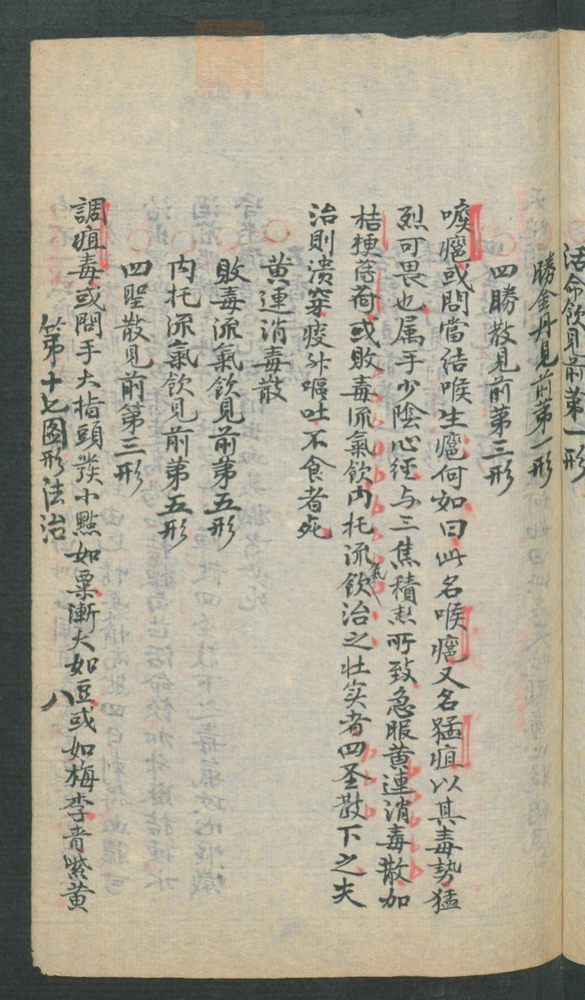 活命飲見前第一形
勝金丹見前第一形
四勝散見前第三形
喉癰或問當結喉生癰何如曰此名喉癰又名猛疽以其毒勢猛
烈可畏也属手少陰心經与三焦積熱所致急服黄連消毒散加
桔梗薄荷或敗毒流氣飲内托流氣飲治之壮实者四圣散下之失
治則潰穿疫外嘔吐不食者死
黄連消毒散
敗毒流氣飲見前第五形
内托流氣飲見前第五形
四聖散見前第三形
調疽毒或問手大指頭發小點如粟漸大如豆或如梅李青紫黄
第十七图形法治
八